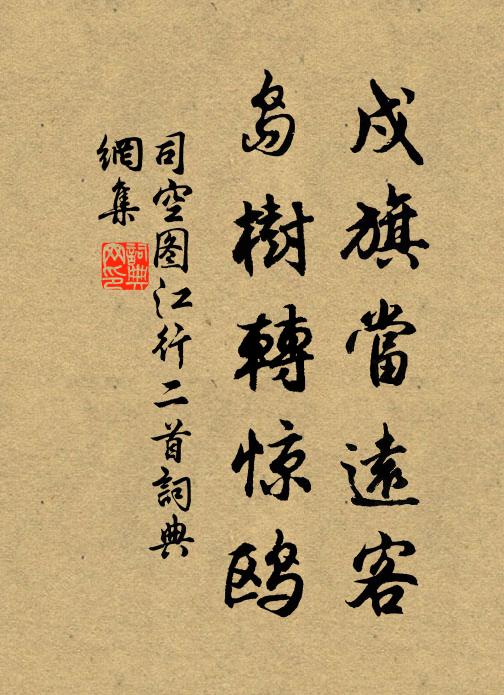 戍旗當遠客
島樹轉惊鸥
司空图江行二首詞典
網集
詞典
网印